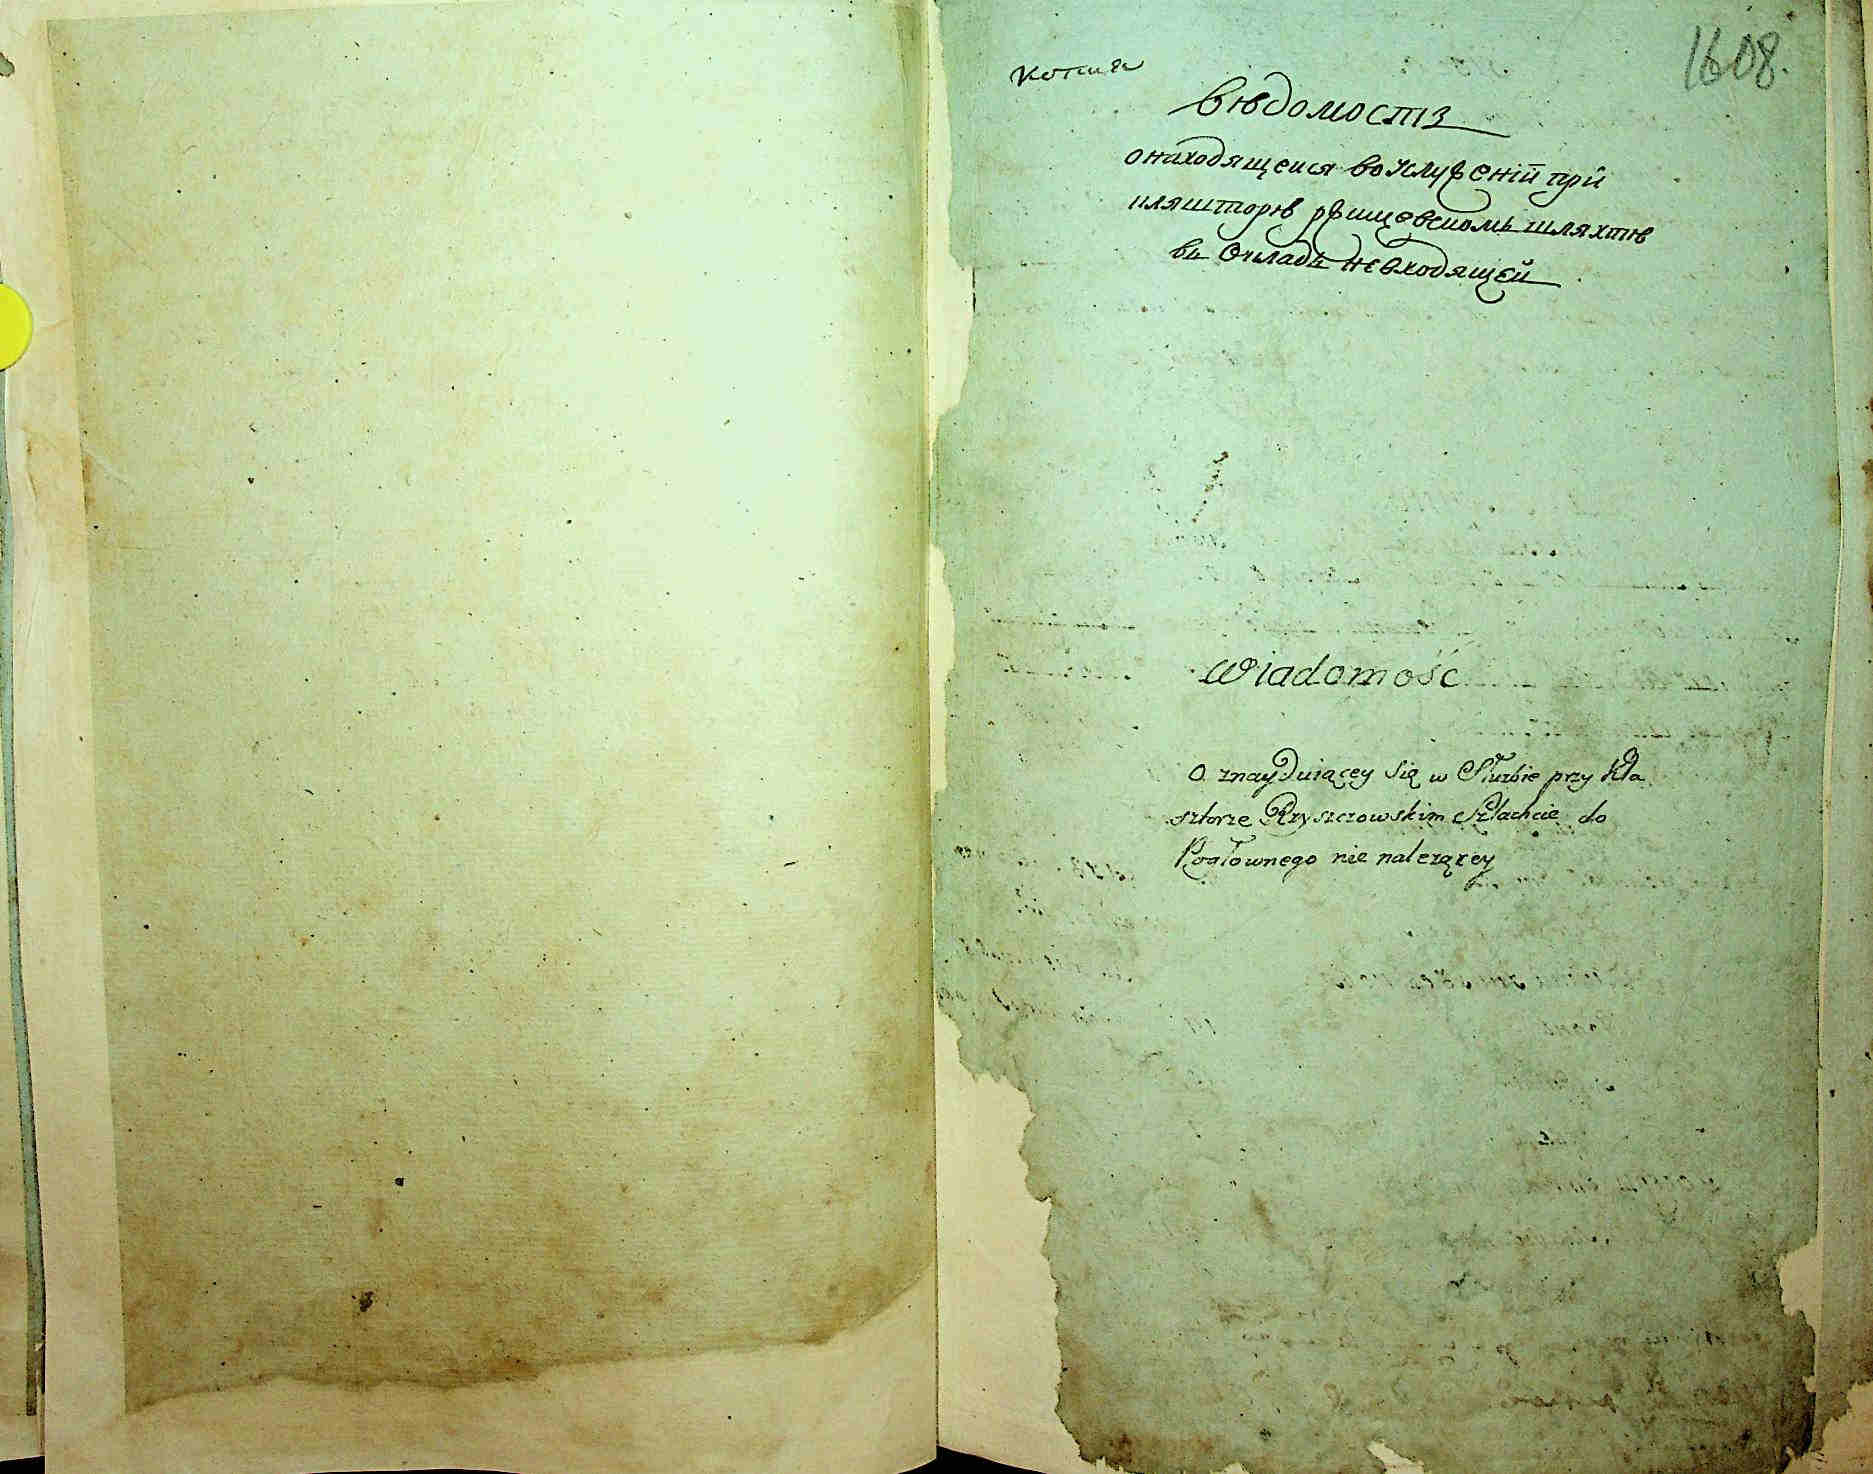 1608.
Копия
Вѣдомость
о находящейся во услуженій при
кляшторѣ ржищевскомъ шляхтѣ
въ Окладъ невходящей
Wiadomość
O znayduiącey się w Służbie przy Kla
sztorze Rzyszczowskim Szlachcie do
Pogłownego nie należącey